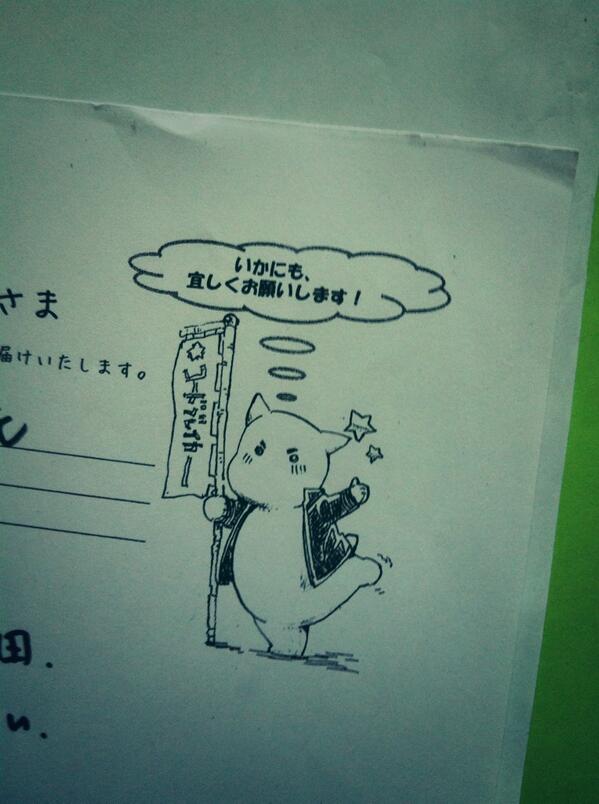 いかにも、
宜しくお願いします！
さま
届けいたします。
田.
い.